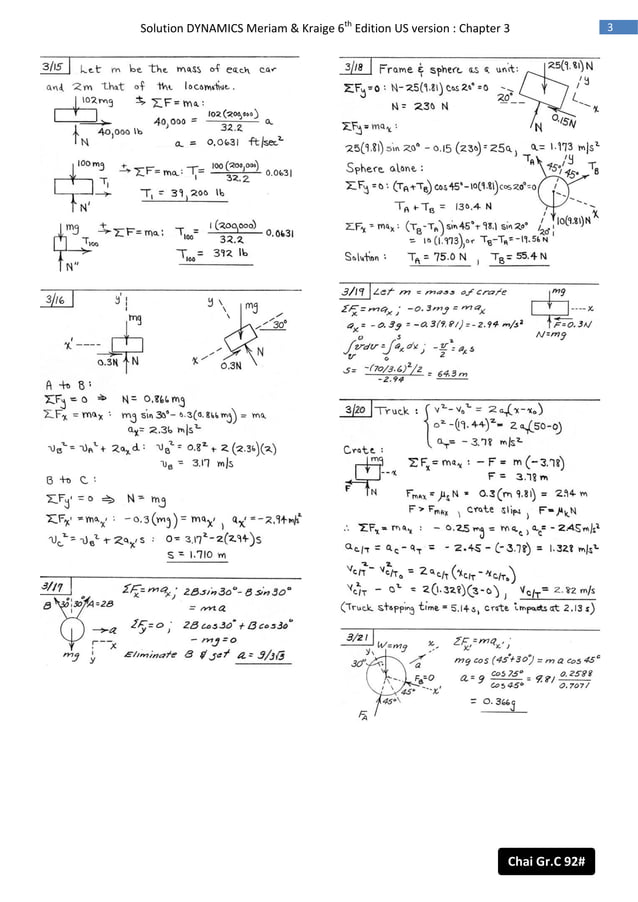 Solution DYNAMICS Meriam & Kraige 6th Edition US version : Chapter 3
3
3/15 Let m be the mass of each car
and 2m that of the locomotive.
102mg
→+ ΣF = ma :
40,000 = 102(200,000)/32.2 a
40,000 lb
N
a = 0.0631 ft/sec²
100mg
→+ ΣF = ma: T₁ = 100(200,000)/32.2 0.0631
T₁
T₁ = 39,200 lb
N'
mg
→+ ΣF = ma: T₁₀₀ = 1(200,000)/32.2 0.0631
T₁₀₀
T₁₀₀ = 392 lb
N"
3/16
y'
mg
x'
0.3N
N
y
mg
30°
x
0.3N
N
A to B :
ΣFy = 0 ⇒ N = 0.866mg
ΣFx = max : mg sin 30° - 0.3(0.866mg) = ma
ax = 2.36 m/s²
vB² = vA² + 2axd : vB² = 0.8² + 2(2.36)(2)
vB = 3.17 m/s
B to C :
ΣFy' = 0 ⇒ N = mg
ΣFx' = max' : -0.3(mg) = max' , ax' = -2.94 m/s²
vC² = vB² + 2ax's : 0 = 3.17² - 2(2.94)s
s = 1.710 m
3/17
ΣFx = max; 2B sin 30° - B sin 30°
= ma
B 30° 30° A=2B
a
ΣFy = 0 ; 2B cos 30° + B cos 30°
- mg = 0
x
mg
y
Eliminate B & get a = g/3√3
3/18 Frame & sphere as a unit:
25(9.81)N
ΣFy = 0 : N - 25(9.81) cos 20° = 0
N = 230 N
20°
y
x
N
0.15N
ΣFx = max :
25(9.81) sin 20° - 0.15 (230) = 25a , a = 1.973 m/s²
Sphere alone :
TA
y
TB
45° 45°
ΣFy = 0 : (TA+TB) cos 45° - 10(9.81) cos 20° = 0
TA + TB = 130.4 N
10(9.81)N
x
20°
ΣFx = max : (TB-TA) sin 45° + 98.1 sin 20°
= 10(1.973), or TB-TA = -19.56 N
Solution : TA = 75.0 N , TB = 55.4 N
3/19 Let m = mass of crate
mg
ΣFx = max ; -0.3mg = max
x
F=0.3N
N=mg
ax = -0.3g = -0.3(9.81) = -2.94 m/s²
∫v⁰ vdv = ∫₀ˢ ax dx ; -v²/2 = ax s
s = -(70/3.6)²/2 / -2.94 = 64.3 m
3/20 Truck : { v² - v₀² = 2a(x-x₀)
0² - (19.44)² = 2aT(50-0)
aT = -3.78 m/s²
Crate :
mg
x
F
N
ΣFx = max : -F = m(-3.78)
F = 3.78m
Fmax = μsN = 0.3(m 9.81) = 2.94m
F > Fmax , crate slips , F = μkN
∴ ΣFx = max : -0.25 mg = mac , ac = -2.45 m/s²
ac/T = ac - aT = -2.45 - (-3.78) = 1.328 m/s²
vc/T² - vc/T₀² = 2ac/T (xc/T - xc/T₀)
vc/T² - 0² = 2(1.328)(3-0) , vc/T = 2.82 m/s
(Truck stopping time = 5.14 s, crate impacts at 2.13 s)
3/21
W=mg
y
x
a
30°
FB=0
45°
x'
45°
FA
ΣFx' = max' ;
mg cos (45°+30°) = m a cos 45°
a = g cos 75°/cos 45° = 9.81 0.2588/0.7071
= 0.366g
Chai Gr.C 92#